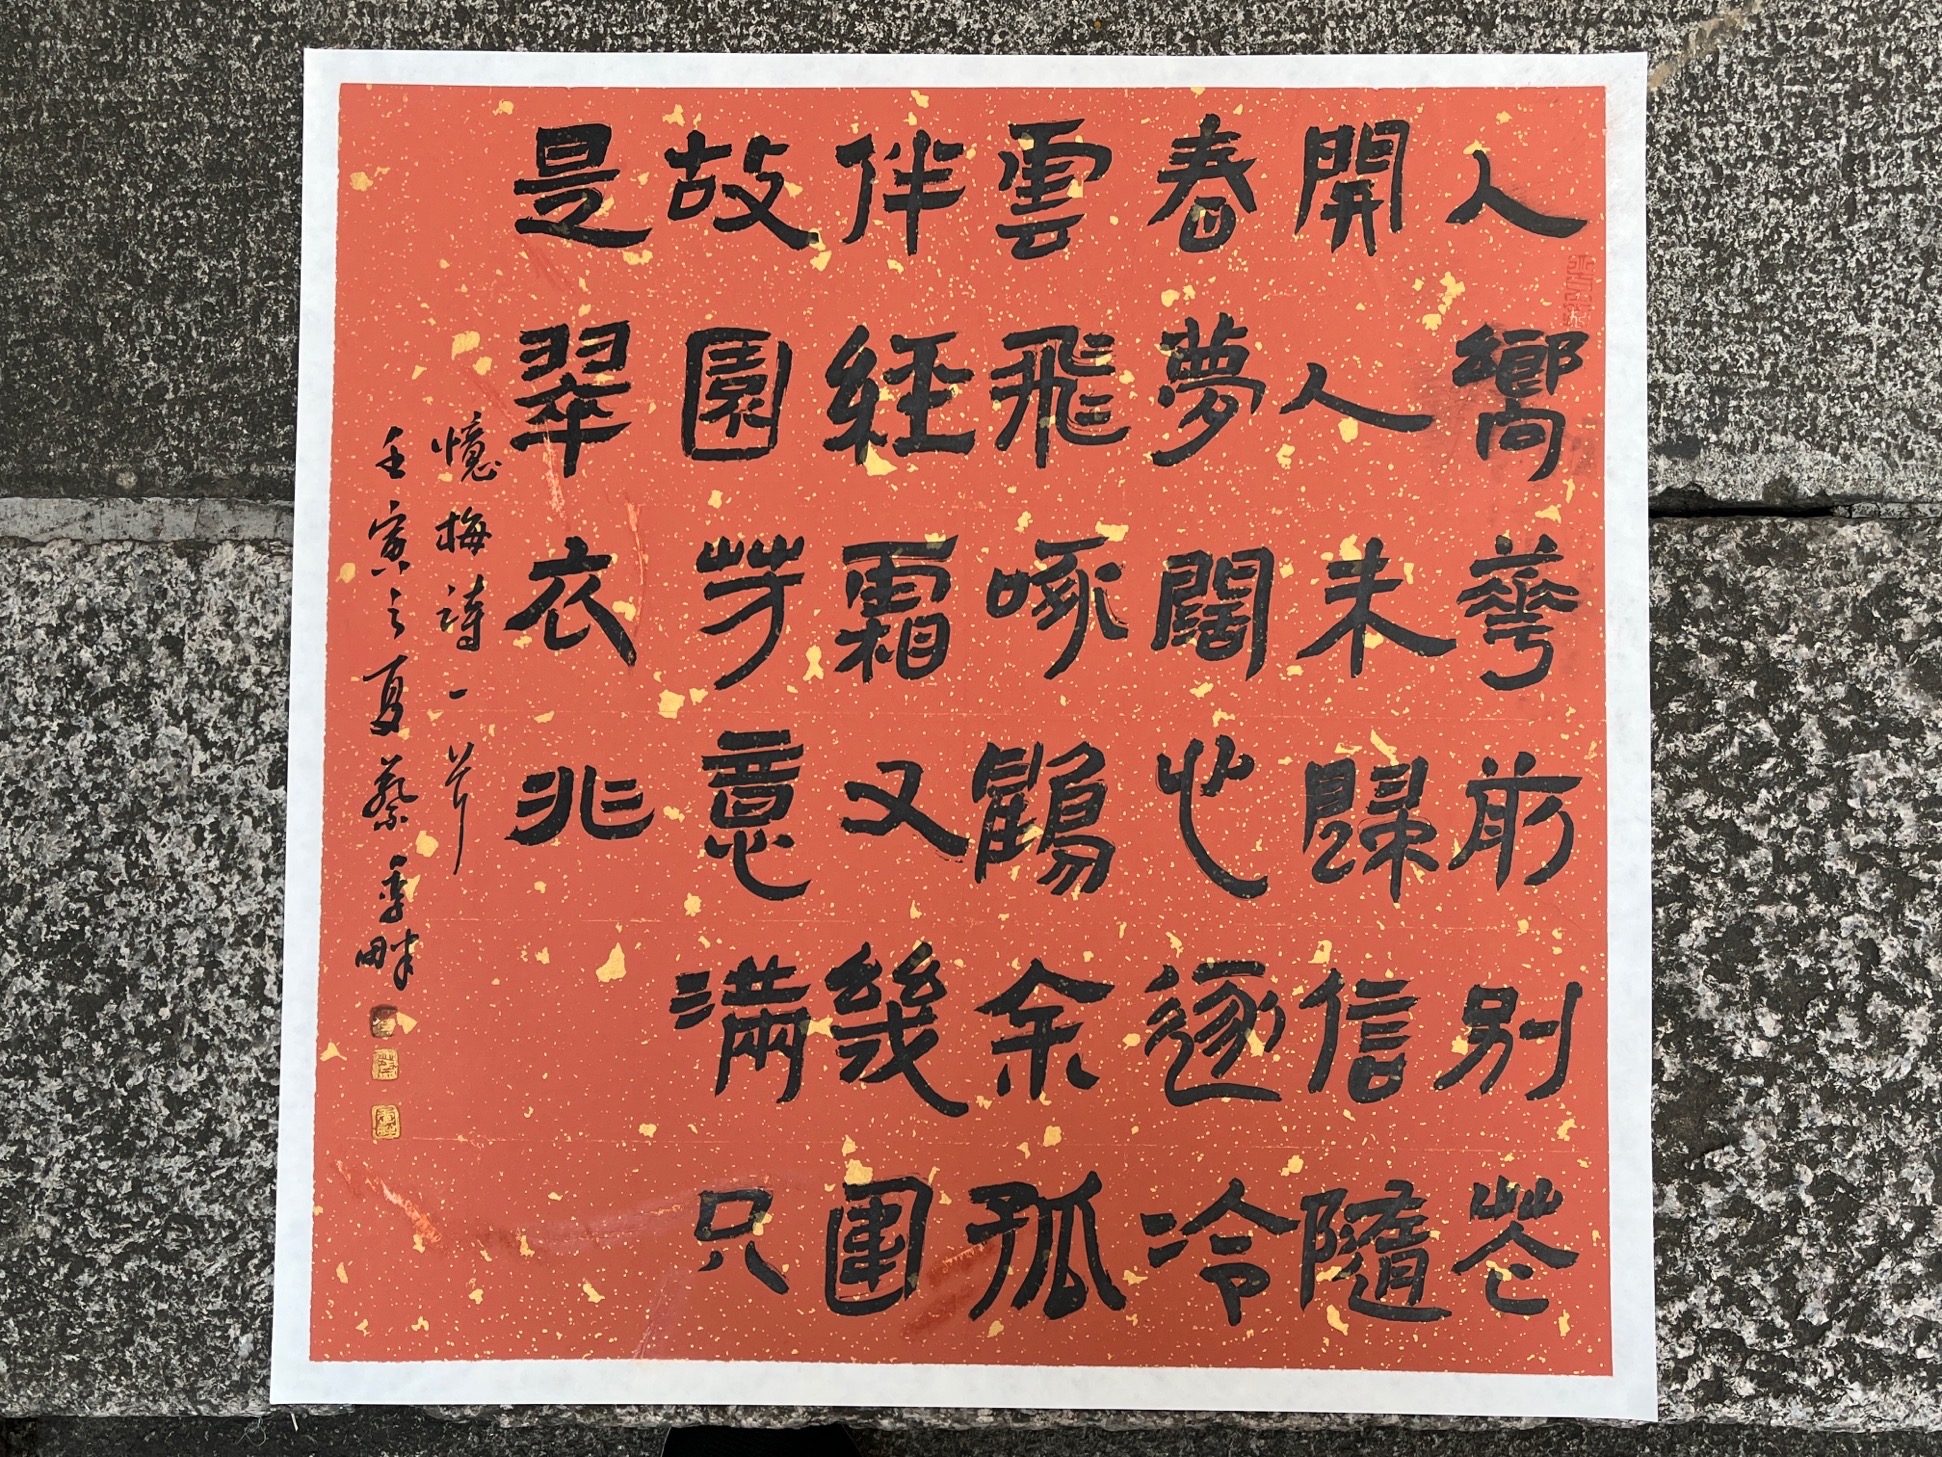 人嚮華前别花
開人未歸信隨
春夢闊心逐冷
雲飛啄鶴余孤
伴經霜又幾圍
故園芳意滿只
是翠衣非
憶梅詩一首
壬寅之夏蔡季畔